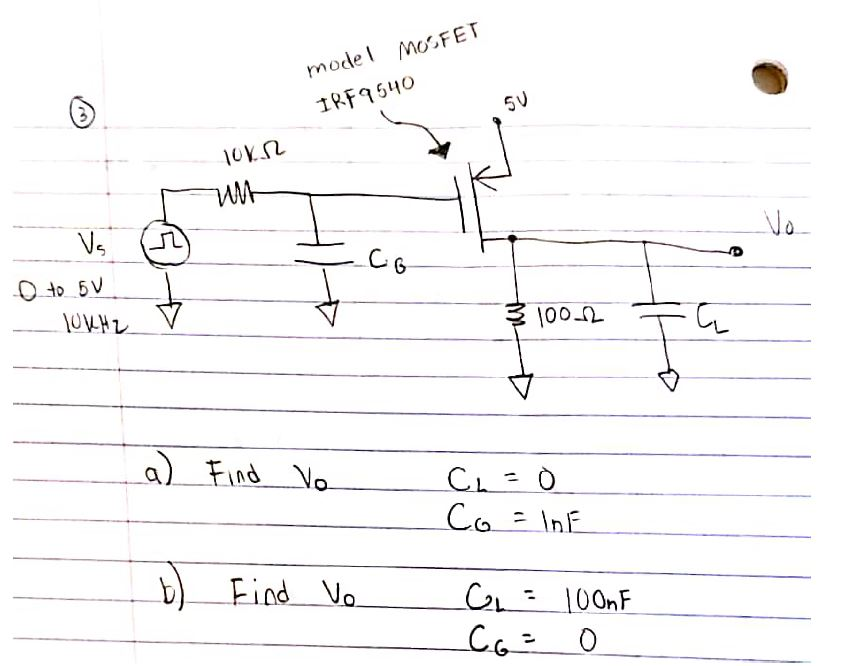 model MOSFET
IRF9540
3
5V
10KΩ
Vo
Vs
CG
0 to 5V
10KHz
100Ω
CL
a) Find Vo CL = 0
CG = 1nF
b) Find Vo CL = 100nF
CG = 0